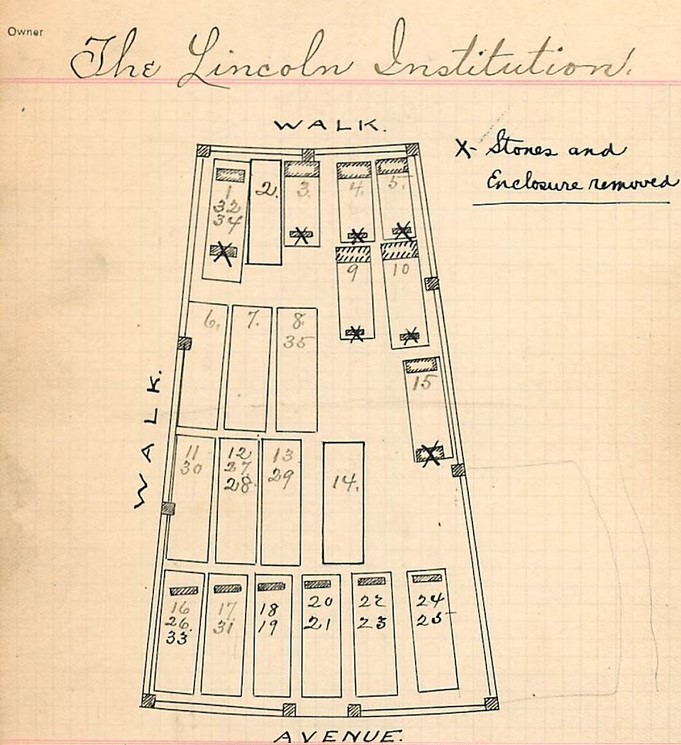 Owner
The Lincoln Institution.
WALK.
X- Stones and
Enclosure removed
1
32
34
2.
3.
4.
5.
9
10
6.
7.
8.
35
15
WALK.
11
30
12
27
28
13
29
14.
16
26
33
17
31
18
19
20
21
22
23
24
25
AVENUE.